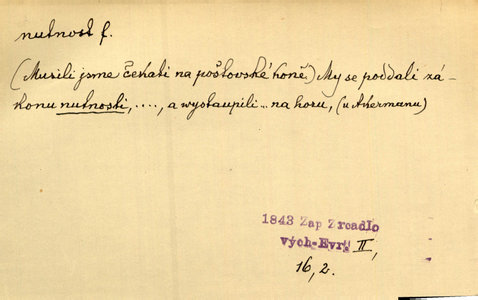 nutnost f.
(Musili jsme čekati na poštovské koně.) My se poddali zá-
konu nutnosti, ...., a wystaupili... na horu, (u Akermanu)
1843 Zap Zrcadlo
vých-Evr. II,
16, 2.